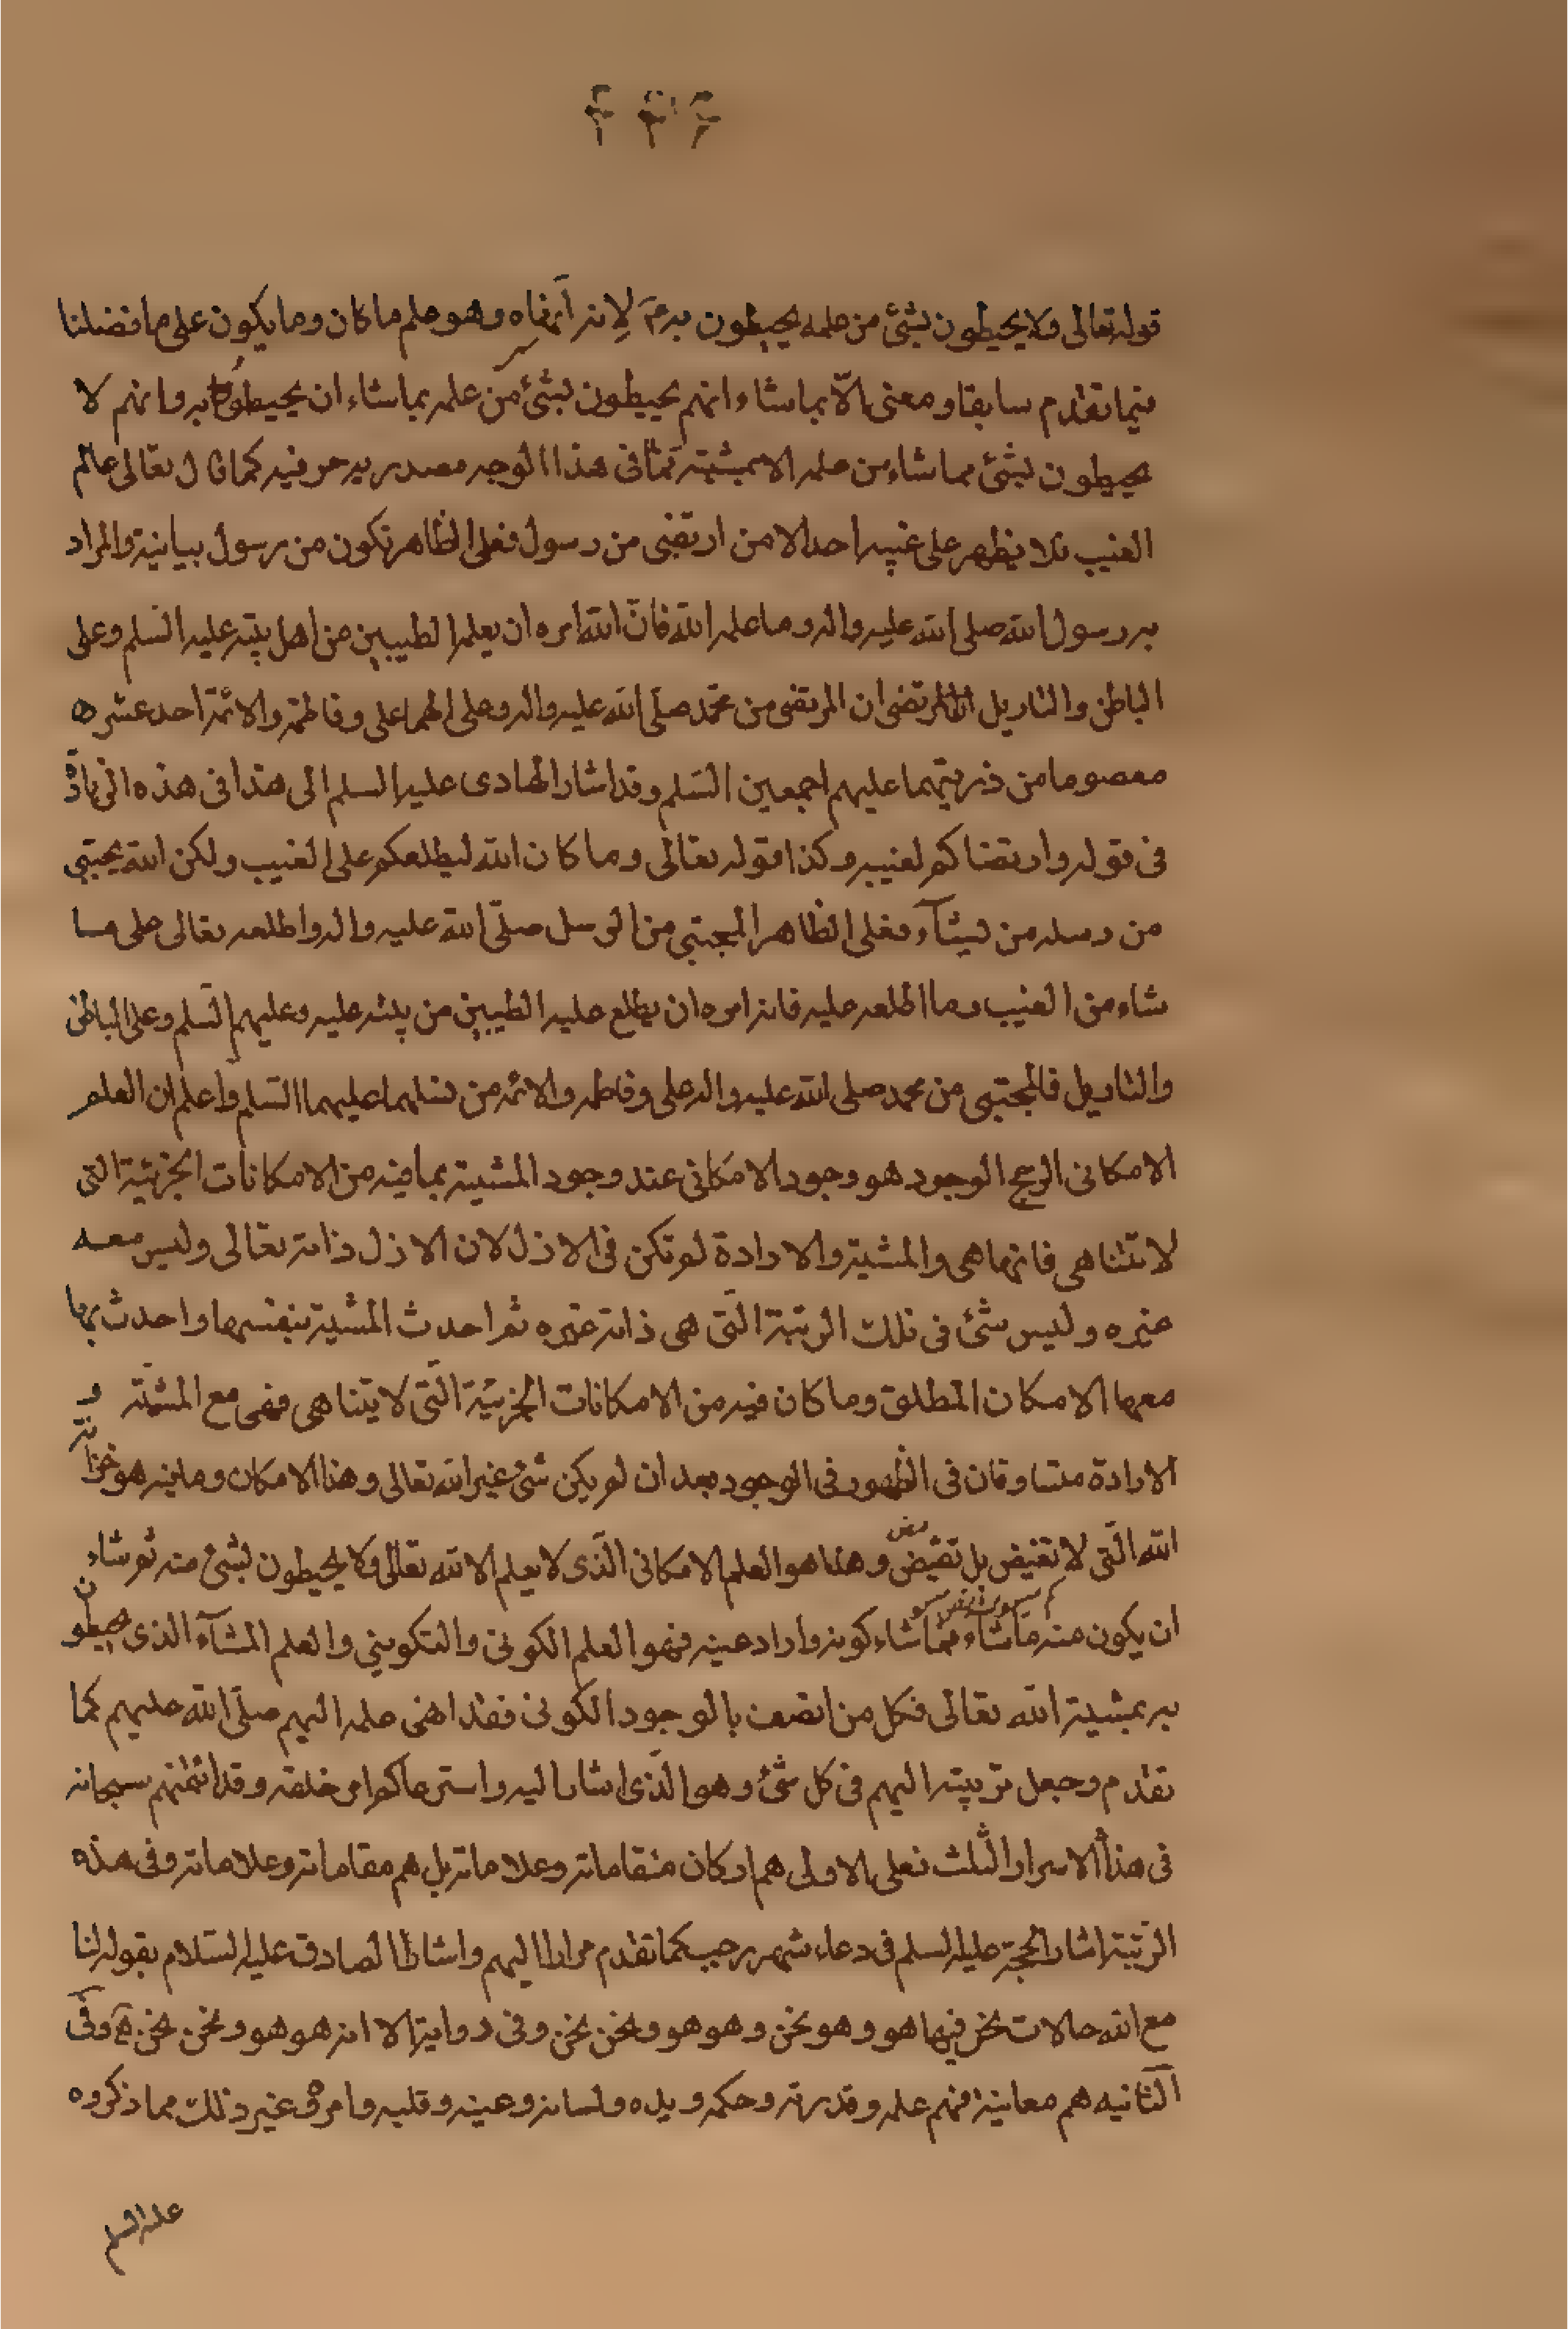 قوله تعالى ولا يحيطون بشئ من علمه يحيطون به لانه انهاه وهو علم ما كان وما يكون على ما فصلنا
فيما تقدم سابقا ومعنى الّا بما شاء انهم يحيطون بشئ من علمه بما شاء ان يحيطوا به وانهم لا
يحيطون بشئ مما شاء من علمه الا بمشيته فما فى هذا الوجه مصدريه حرفيه كما قال تعالى عالم
الغيب فلا يظهر على غيبه احدا الا من ارتضى من رسول فعلى الظاهر تكون من رسول بيانية والمراد
به رسول الله صلى الله عليه واله وما علمه الله فانّ الله امره ان يعلمه الطيبين من اهل بيته عليه السلم وعلى
الباطن والتاويل ان المرتضى من محمّد صلّى الله عليه واله وعلى الهما على وفاطمة والائمة احد عشر
معصوما من ذريتهما عليهم اجمعين السّلم وقد اشار الهادى عليه السلم الى هذا فى هذه الزيارة
فى قوله وارتضاكم لغيبه وكذا قوله تعالى وما كان الله ليطلعكم على الغيب ولكن الله يجتبى
من رسله من يشآء فعلى الظاهر المجتبى من الرسل صلّى الله عليه واله واطلعه تعالى على ما
شاء من الغيب وما اطلعه عليه فانه امره ان يطلع عليه الطيبين من بيته عليه وعليهم السّلم وعلى الباطن
والتاويل فالمجتبى من محمد صلى الله عليه واله على وفاطمه والائمه من نسلهما عليهما السّلم واعلم ان العلم
الامكانى الرجح الوجود هو وجود الامكانى عند وجود المشية بما فيه من الامكانات الجزئية التى
لا تتناهى فانها هى والمشية والارادة لم تكن فى الازل لان الازل ذاته تعالى وليس معه
غيره وليس شئ فى تلك الرتبة الّتى هى ذاته غيره ثم احدث المشية بنفسها واحدث بها
معها الامكان المطلق وما كان فيه من الامكانات الجزئية الّتى لا يتناهى فهى مع المشيّة و
الارادة متساوقان فى الظهور فى الوجود بعد ان لم يكن شئ غير الله تعالى وهذا الامكان وما فيه هو خزانة
الله الّتى لا تغيض بل تفيض وهذا هو العلم الامكانى الّذى لا يعلم الا الله تعالى ولا يحيطون بشئ منه ثم شاء
ان يكون منه ما شاء مما شاء كونه واراد عينه فهو العلم الكونى والتكوينى والعلم المشآء الذى يحيطون
به بمشية الله تعالى فكل من اتصف بالوجود الكونى فقد انهى علمه اليهم صلّى الله عليهم كما
تقدم وجعل تربيته اليهم فى كل شئ وهو الّذى اشار اليه واسترعاكم امر خلقه وقد ائتمنهم سبحانه
فى هذا الاسرار الثّلث فعلى الاولى هم اركان مقاماته وعلاماته بل هم مقاماته وعلاماته وفى هذه
الرّتبة اشار الحجة عليه السلم فى دعاء شهر رجب كما تقدم مرارا اليهم واشار الصادق عليه السّلام بقوله لنا
مع الله حالات نحن فيها هو وهو نحن وهو هو ونحن نحن وفى رواية الا انه هو هو ونحن نحن وفى
الثانيه هم معانيه فهم علمه وقدرته وحكمه ويده ولسانه وعينه وقلبه وامره وغير ذلك مما ذكروه
عليه السلم